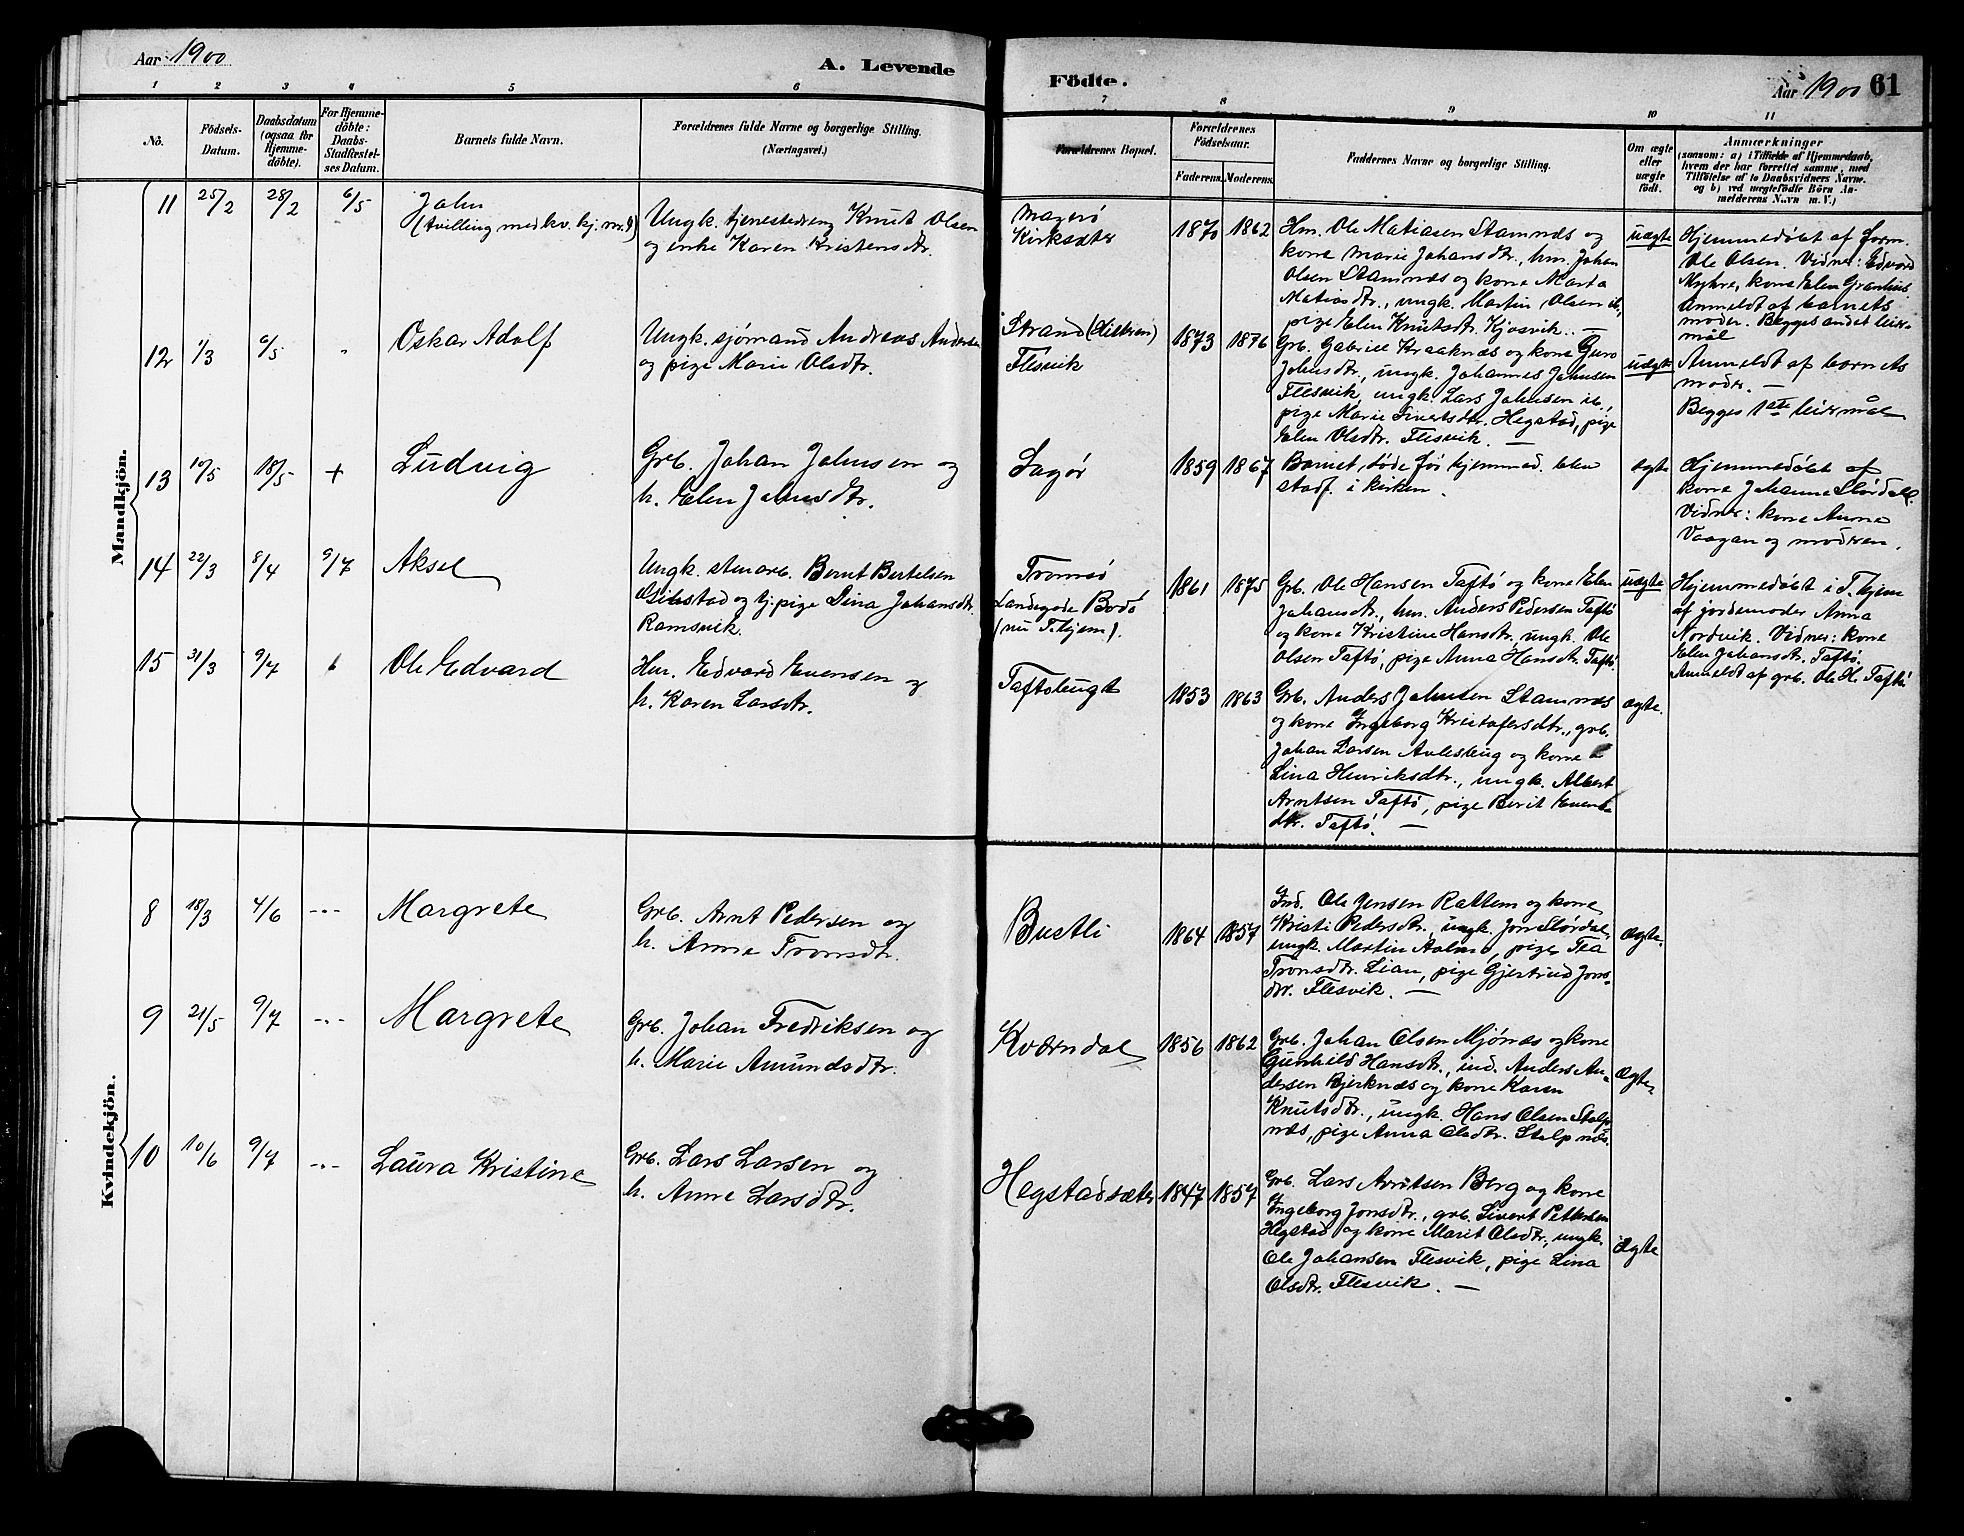 Aar 1900
A. Levende
Födte.
Aar 1900
61
1 2 3 4 5 6 7 8 9 10 11
No.
Födsels-
Datum.
Daabsdatum
(ogsaa for
Hjemme-
döbte).
For Hjemme-
döbte:
Daabs-
Stadfæstel-
ses Datum.
Barnets fulde Navn.
Forældrenes fulde Navne og borgerlige Stilling.
(Næringsvei.)
Forældrenes Bopæl.
Forældrenes
Födselsaar.
Faderens. Moderens.
Faddernes Navne og borgerlige Stilling.
Om ægte
eller
uægte
födt.
Anmærkninger
(saasom: a) i Tilfælde af Hjemmedaab,
hvem der har forrettet samme, med
Tilföielse af to Daabsvidners Navne,
og b) ved uægtefödte Börn An-
melderens Navn m. V.)
Mandkjön.
11 25/2 28/2 6/5
John
(tvilling med kv. kj. nr. 9)
Ungk. tjenestedreng Knut Olsen
og enke Karen Kristensdtr.
Magerö
Kirksæter
1870 1862
Hm. Ole Matiasen Stamnæs og
kone Marie Johansdtr., hm. Johan
Olsen Stamnæs og kone Marta
Matiasdtr., ungk. Martin Olsen ib.,
pige Elen Knutsdtr. Kjosvik. —
uægte
Hjemmedöbt af form.
Ole Olsen. Vidner: Edvard
Myhre, kone Elen
Anmeldt af barnets
moder. Begges andet leier-
mål
12 1/3 6/5 "
Oskar Adolf
Ungk. sjömand Andreas Anders
og pige Marie Olsdtr.
Strand (Hitteren)
Flesvik
1873 1876
Grb. Gabriel Kraaknæs og kone Guro
Johnsdtr., ungk. Johannes Johnsen
Flesvik, ungk. Lars Johnsen ib.,
pige Marie Sivertsdtr. Hegstad, pige
Elen Olsdtr. Flesvik. —
uægte
Anmeldt af barnets
moder. —
Begges 1ste leiermål
13 10/5 18/5 +
Ludvig
Grb. Johan Johnsen og
h. Elen Johnsdtr.
Sagör
1859 1867
Barnet döde för hjemmed. blev
stadf. i kirken.
ægte
Hjemmedöbt af
kone Johanna Stördal.
Vidner: kone Anna
Vaagan og moderen.
14 22/3 8/4 9/7
Aksel
Ungk. stenarb. Bernt Bertelsen
og tj. pige Dina Johansdtr.
Ramsvik.
Tromsö
Landegode Bodö
(nu T.hjem).
1861 1875
Grb. Ole Hansen Taftö og kone Elen
Johansdtr., hm. Anders Pedersen Taftö
og kone Kristine Hansdtr., ungk. Ole
Olsen Taftö, pige Anna Hansdtr. Taftö.
uægte
Hjemmedöbt i T.hjem
af jordemoder Anna
Nordvik. Vidner: kone
Elen Johansdtr. Taftö.
Anmeldt af grb. Ole H. Taftö
15 31/3 9/7
Ole Edvard
Hm. Edvard Evensen og
h. Karen Larsdtr.
Taftöbugt
1853 1863
Grb. Anders Johnsen Stamnæs
og kone Ingeborg Kristofersdtr., grb.
Johan Larsen Avlesbug og kone
Lina Henriksdtr., ungk. Albert
Arntsen Taftö, pige Berit Evens
dtr. Taftö. —
ægte.
Kvindekjön.
8 18/3 4/6 ---
Margrete
Grb. Arnt Pedersen og
h. Anne Tronsdtr.
Bustli
1864 1857
Ind. Ole Jensen Rattem og kone
Kristi Pedersdtr., ungk. Jon Stördal,
ungk. Martin Aalmo, pige Tea
Tronsdtr. Lian, pige Gjertrud Jons-
dtr. Flesvik. —
ægte.
9 21/5 9/7 ---
Margrete
Grb. Johan Fredriksen og
h. Marie Amundsdtr.
Kværndal
1856 1862
Grb. Johan Olsen Mjönæs og kone
Gunhild Hansdtr., ind. Anders An-
dersen Bjerknæs og kone Karen
Knutsdtr., ungk. Hans Olsen Stolp
næs, pige Anna Olsdtr. Stolpnæs.
ægte
10 10/6 9/7 ---
Laura Kristine
Grb. Lars Larsen og
h. Anne Larsdtr.
Hegstadsæter
1847 1857
Grb. Lars Arntsen Berg og kone
Ingeborg Jonsdtr., grb. Sivert Pettersen
Hegstad og kone Marit Olsdtr., ungk.
Ole Johansen Flesvik, pige Lina
Olsdtr. Flesvik. —
ægte